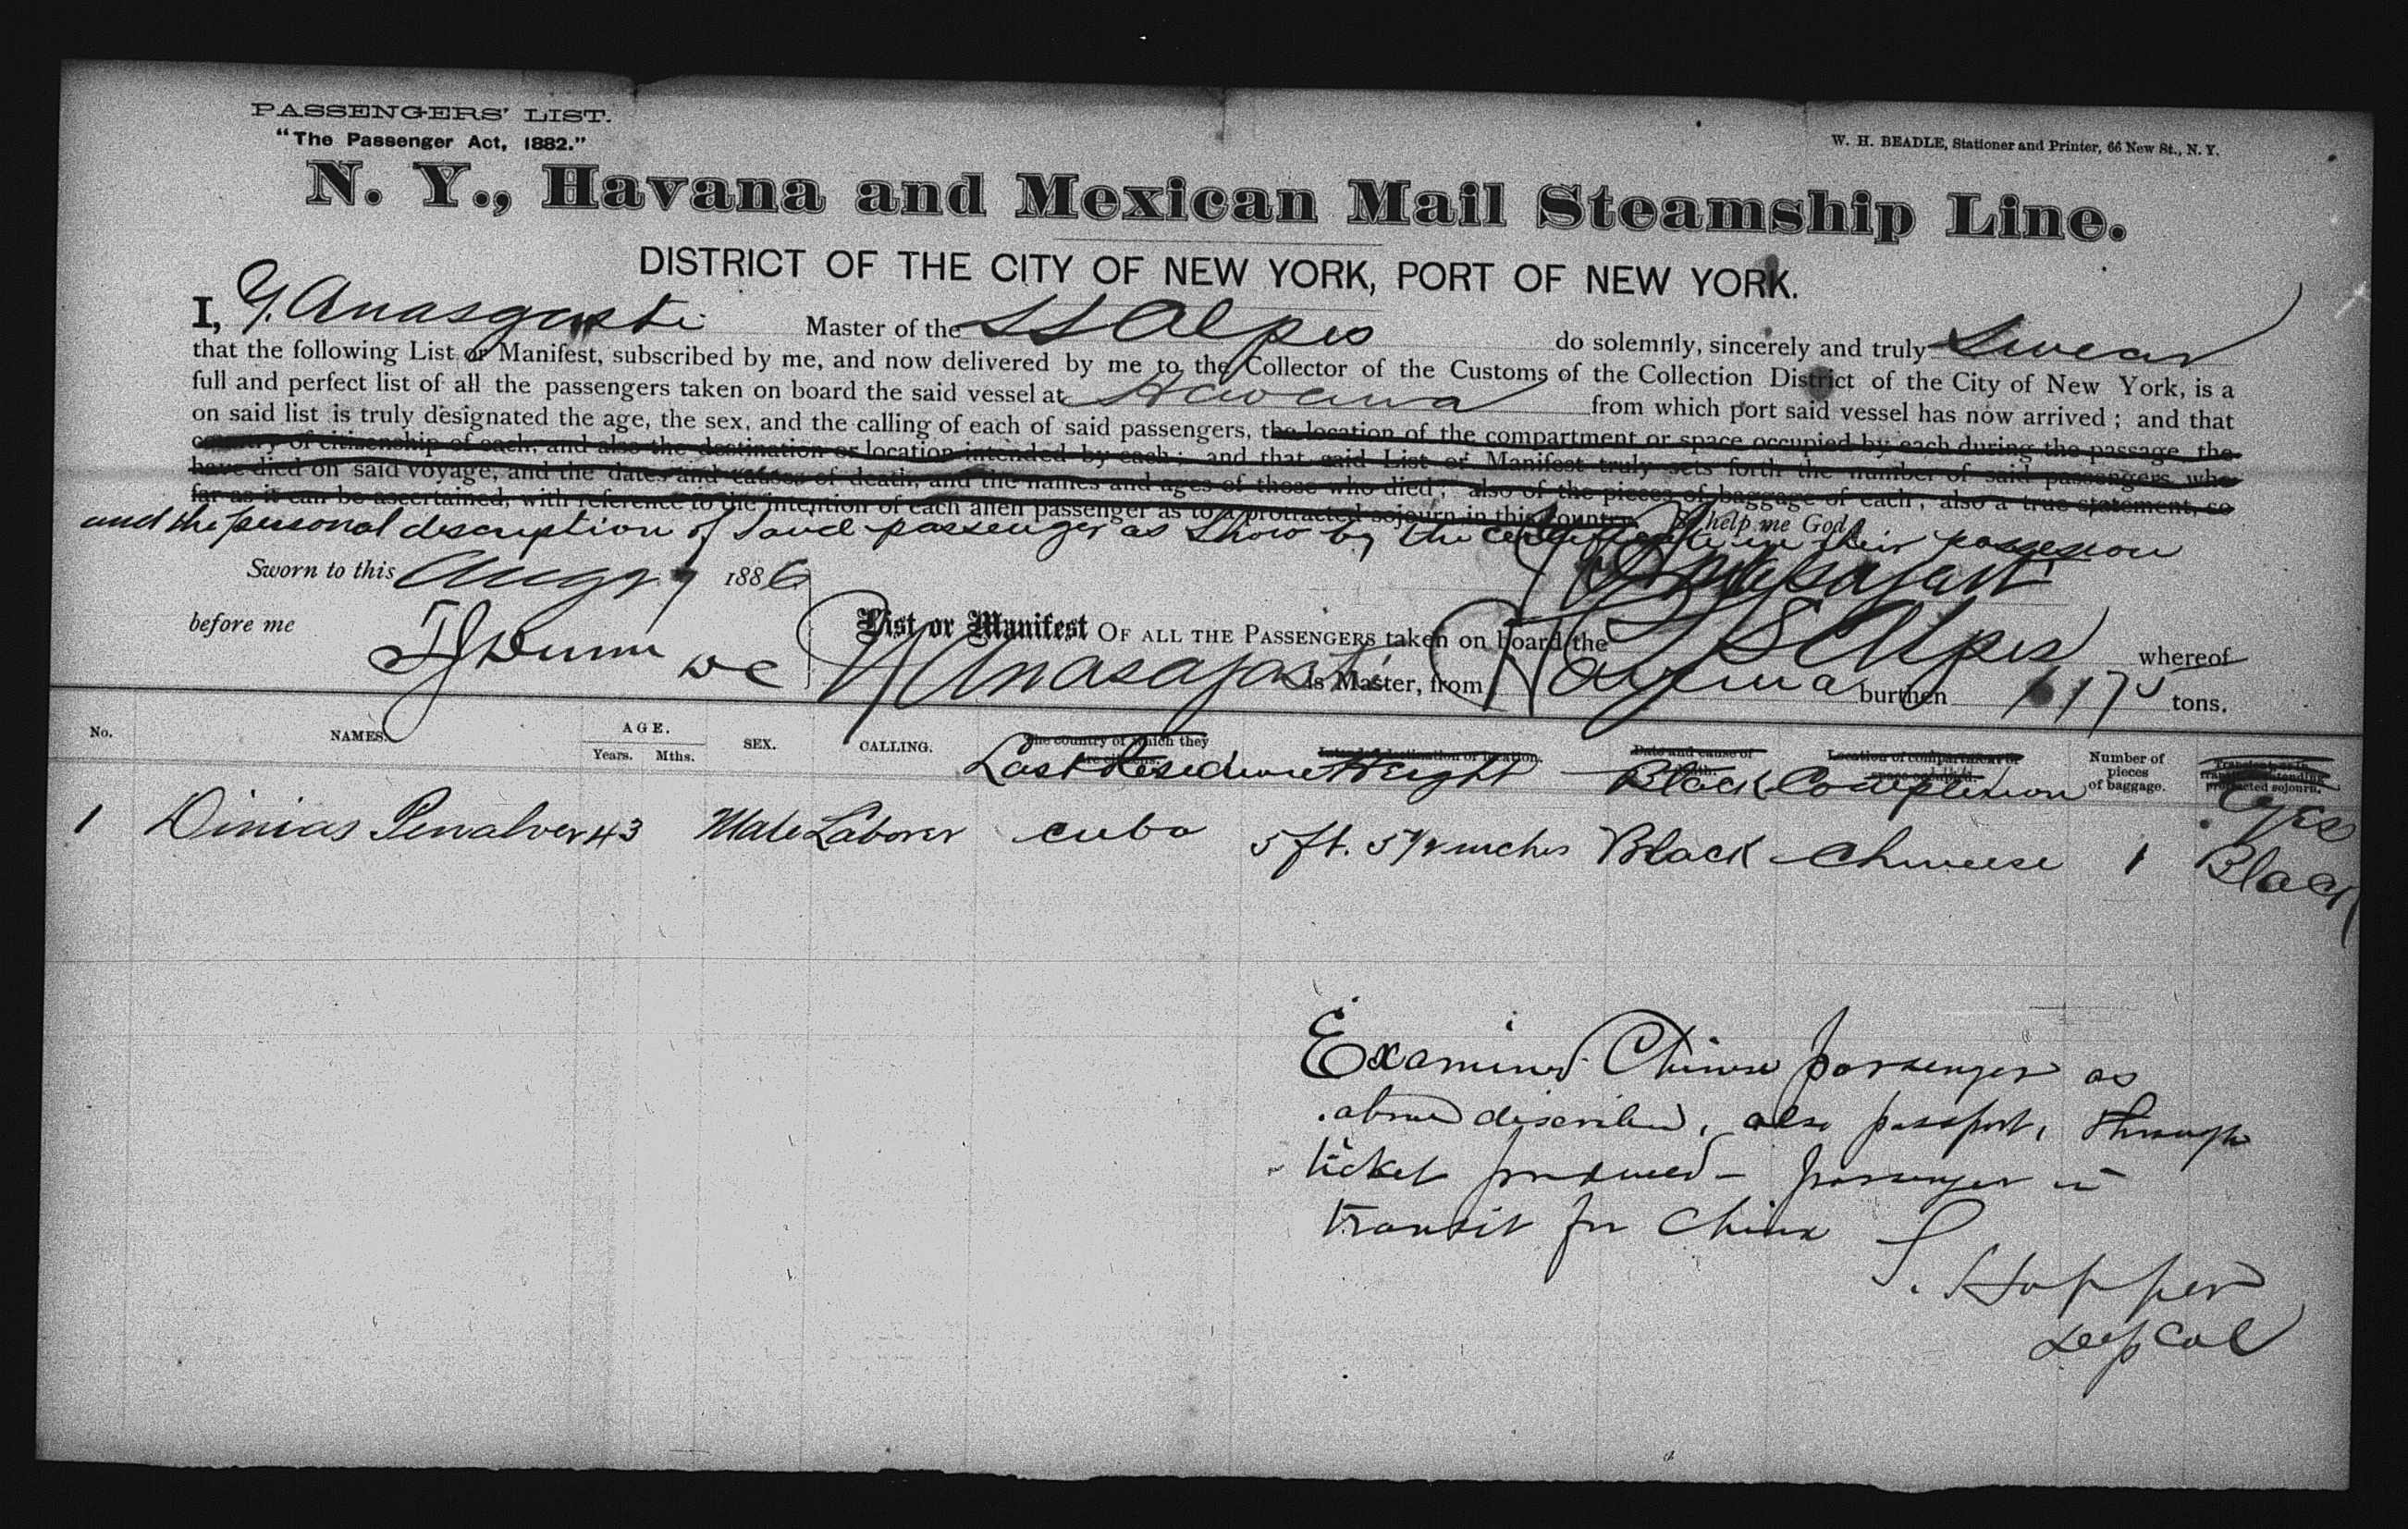 PASSENGERS' LIST.
"The Passenger Act, 1882."
W. H. BEADLE, Stationer and Printer, 66 New St., N. Y.
N. Y., Havana and Mexican Mail Steamship Line.
DISTRICT OF THE CITY OF NEW YORK, PORT OF NEW YORK.
I, Y. Anasgasti Master of the SS Alpes do solemnly, sincerely and truly Swear
that the following List or Manifest, subscribed by me, and now delivered by me to the Collector of the Customs of the Collection District of the City of New York, is a
full and perfect list of all the passengers taken on board the said vessel at Havana from which port said vessel has now arrived; and that
on said list is truly designated the age, the sex, and the calling of each of said passengers, the location of the compartment or space occupied by each during the passage, the
country of citizenship of each, and also the destination or location intended by each; and that said List or Manifest truly sets forth the number of said passengers who
have died on said voyage, and the dates and causes of death, and the names and ages of those who died; also of the pieces of baggage of each; also a true statement, so
far as it can be ascertained, with reference to the intention of each alien passenger as to a protracted sojourn in this country. So help me God
and the personal description of said passenger as show by the certificate in their possession
Sworn to this Aug 27 1886
before me TJ Dunn DC
List or Manifest OF ALL THE PASSENGERS taken on board the SS Alpes whereof
Y Anasagasti is Master, from Havana burthen 1175 tons.
No. NAMES. AGE. Years. Mths. SEX. CALLING. The country of which they are citizens. Intended destination or location. Date and cause of death. Location of compartment or space occupied. Number of pieces of baggage. Transient, or in transit, or intending protracted sojourn.
Last Residence Height Black Complexion Eyes
1 Dinias Penalver 43 Male Laborer Cuba 5 ft. 5 1/2 inches Black Chinese 1 Black
Examined Chinese passenger as
above described, also passport, through
ticket produced - passenger in
transit for China
S. Hopper
Dep Col